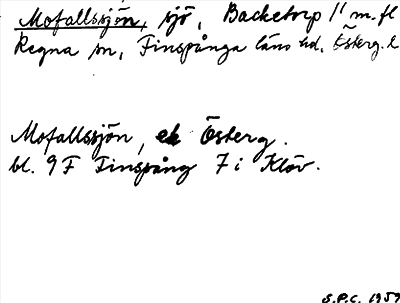 Mofallssjön, sjö, Backetorp 1/1 m.fl
Regna sn, Finspånga läns hd, Österg. l
Mofallssjön, ek Österg.
bl. 9F Finspång 7 i Klöv.
S.P.C. 1959